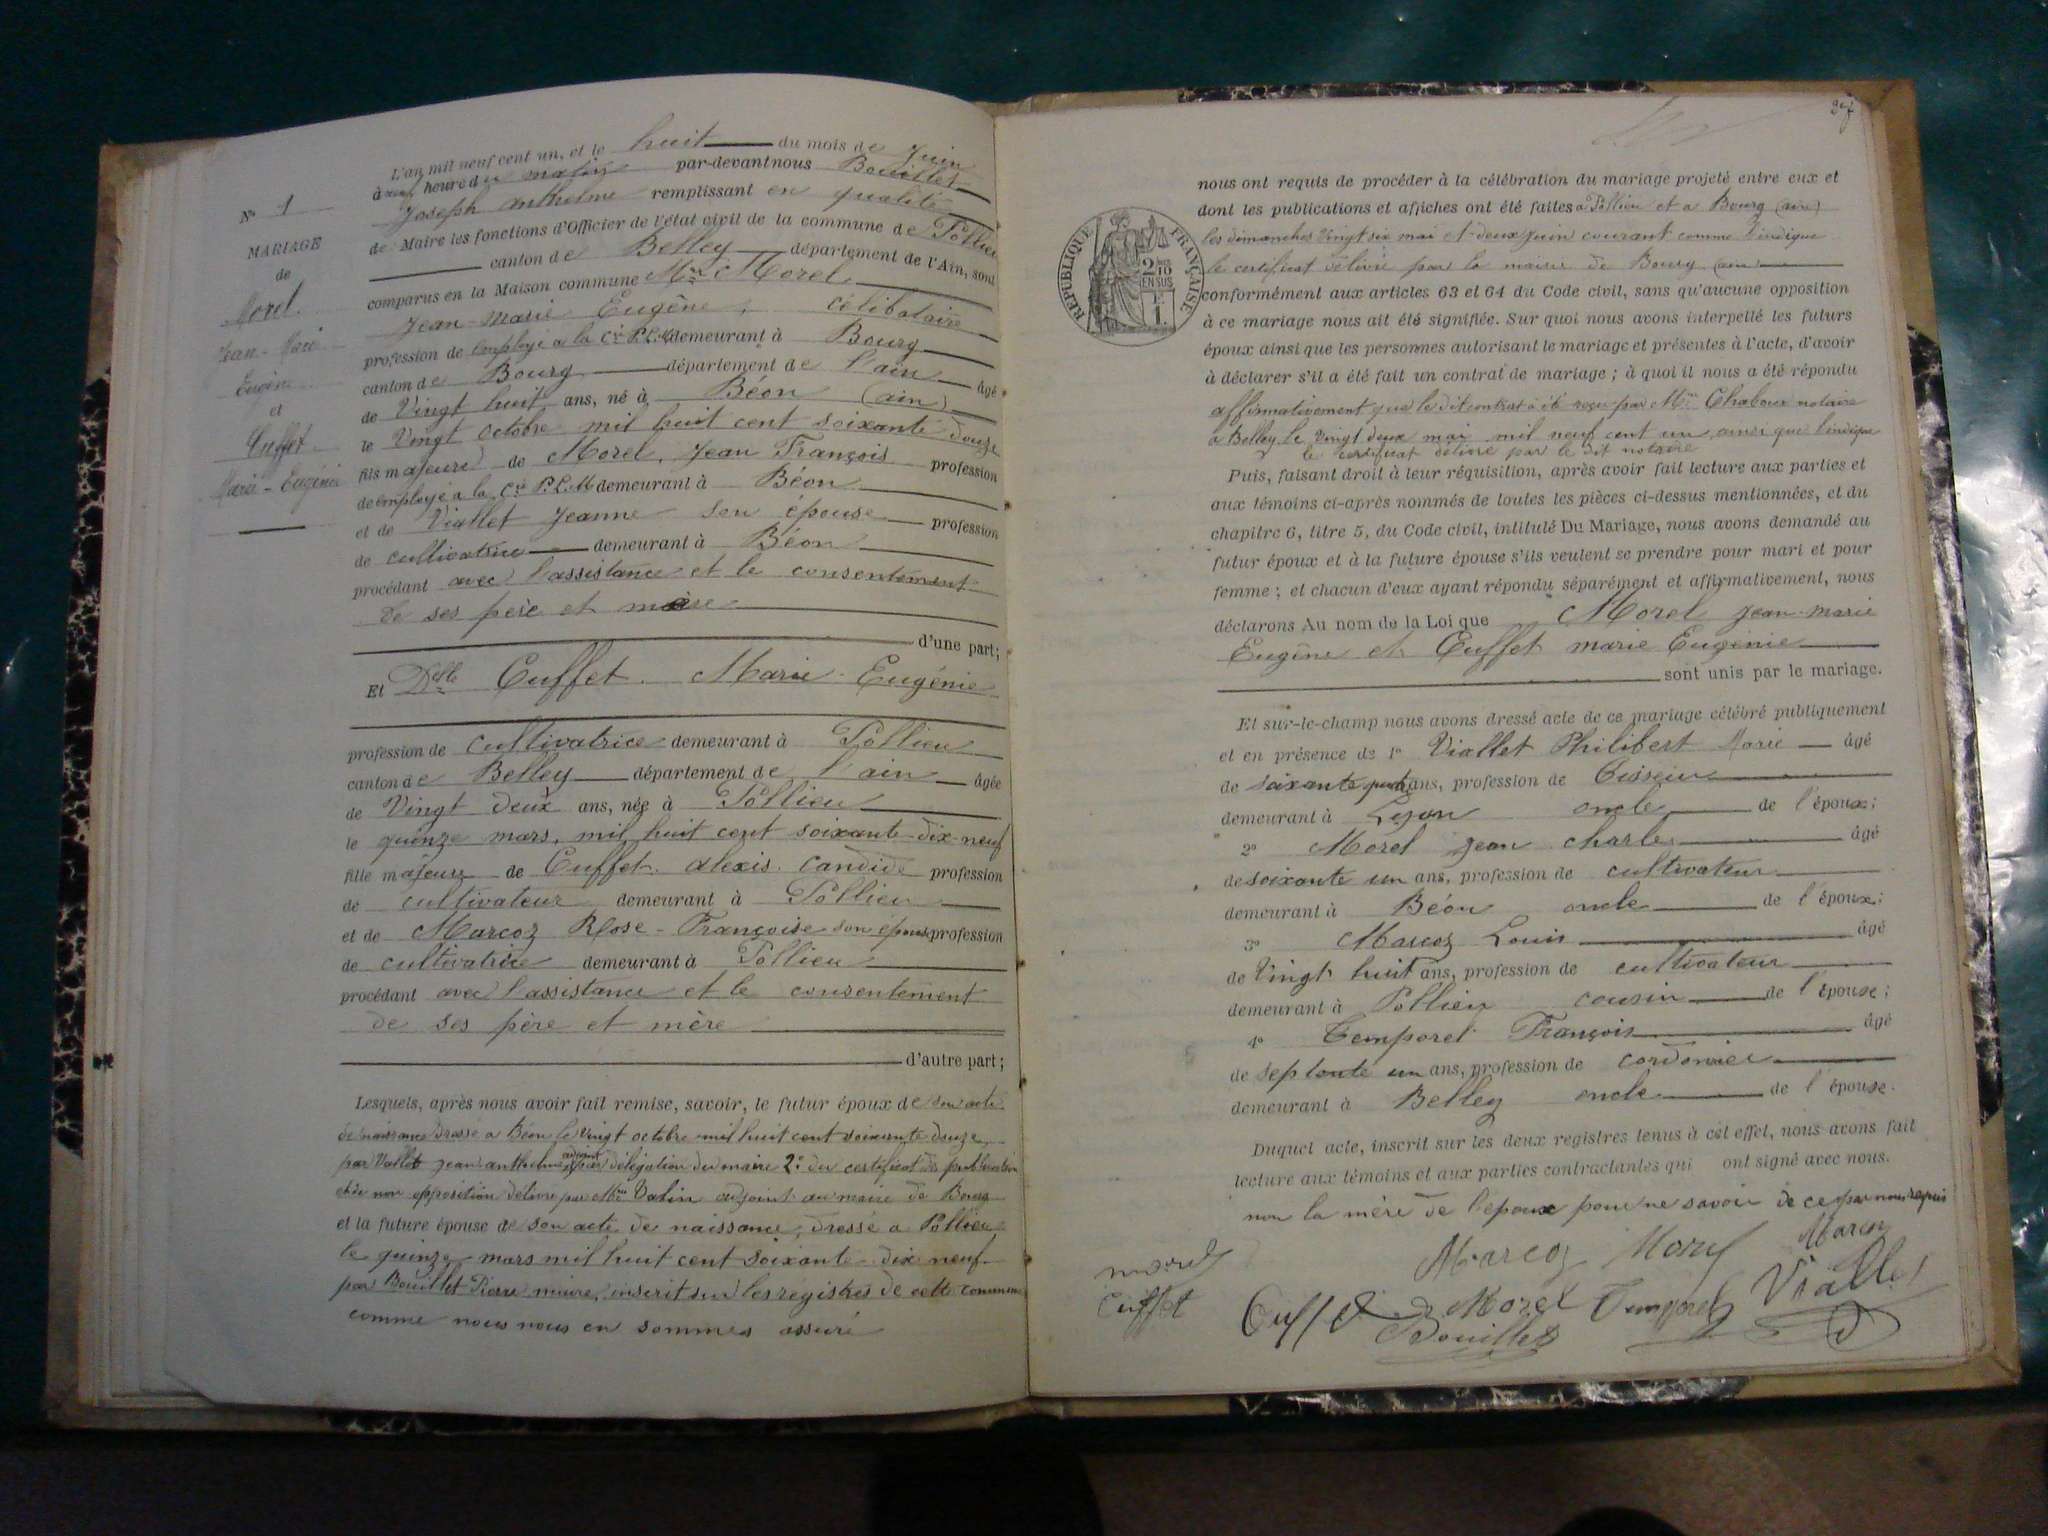 N° 1
MARIAGE
de
Morel
Jean-Marie
Eugène
et
Cuffet
Marie-Eugénie
L'an mil neuf cent un, et le huit du mois de Juin
à heure du matin par-devant nous Bouillet
Joseph Anthelme remplissant en qualité
de Maire les fonctions d'Officier de l'état civil de la commune de Pollieu
canton de Belley département de l'Ain, sont
comparus en la Maison commune Mr Morel
Jean-Marie Eugène, célibataire
profession de employé a la Cie P.L.M. demeurant à Bourg
canton de Bourg département de l'ain âgé
de Vingt huit ans, né à Béon (ain)
le Vingt octobre mil huit cent soixante douze
fils majeur de Morel, Jean François profession
de employé a la Cie P.L.M demeurant à Béon
et de Viallet Jeanne son épouse profession
de cultivatrice demeurant à Béon
procédant avec l'assistance et le consentement
de ses père et mère
d'une part;
Et Delle Cuffet Marie-Eugénie
profession de cultivatrice demeurant à Pollieu
canton de Belley département de l'ain âgée
de Vingt deux ans, née à Pollieu
le quinze mars, mil huit cent soixante-dix-neuf
fille majeure de Cuffet alexis candide profession
de cultivateur demeurant à Pollieu
et de Marcoz Rose-Françoise son épouse profession
de cultivatrice demeurant à Pollieu
procédant avec l'assistance et le consentement
de ses père et mère
d'autre part;
Lesquels, après nous avoir fait remise, savoir, le futur époux de son acte
de naissance dressé a Béon le vingt octobre mil huit cent soixante douze
par Vallet jean anthelme adjoint par délégation du maire 2° du certificat de publication
et de non opposition délivré par Mr adjoint au maire de Bourg
et la future épouse de son acte de naissance, dressé a Pollieu
le quinze mars mil huit cent soixante dix neuf
par Bouillet Pierre maire, inscrit sur les registres de cette commune
comme nous nous en sommes assuré
27
RÉPUBLIQUE FRANÇAISE
2/10
EN SUS
1 F.
nous ont requis de procéder à la célébration du mariage projeté entre eux et
dont les publications et affiches ont été faites a Pollieu et a Bourg (ain)
les dimanches vingt six mai et deux juin courant comme l'indique
le certificat délivré par la mairie de Bourg (ain)
conformément aux articles 63 et 64 du Code civil, sans qu'aucune opposition
à ce mariage nous ait été signifiée. Sur quoi nous avons interpellé les futurs
époux ainsi que les personnes autorisant le mariage et présentes à l'acte, d'avoir
à déclarer s'il a été fait un contrat de mariage; à quoi il nous a été répondu
affirmativement que le dit contrat a été reçu par Me Chaboux notaire
a Belley le vingt deux mai mil neuf cent un, ainsi que l'indique
le certificat délivré par le dit notaire
Puis, faisant droit à leur réquisition, après avoir fait lecture aux parties et
aux témoins ci-après nommés de toutes les pièces ci-dessus mentionnées, et du
chapitre 6, titre 5, du Code civil, intitulé Du Mariage, nous avons demandé au
futur époux et à la future épouse s'ils veulent se prendre pour mari et pour
femme; et chacun d'eux ayant répondu séparément et affirmativement, nous
déclarons Au nom de la Loi que Morel Jean-marie
Eugène et Cuffet marie Eugénie
sont unis par le mariage.
Et sur-le-champ nous avons dressé acte de ce mariage célébré publiquement
et en présence de 1° Viallet Philibert Marie âgé
de soixante ans, profession de Tisseur
demeurant à Lyon oncle de l'époux;
2° Morel Jean charles âgé
de soixante un ans, profession de cultivateur
demeurant à Béon oncle de l'époux;
3° Marcoz Louis âgé
de Vingt huit ans, profession de cultivateur
demeurant à Pollieu cousin de l'épouse;
4° Temporel François âgé
de septante un ans, profession de cordonnier
demeurant à Belley oncle de l'épouse.
Duquel acte, inscrit sur les deux registres tenus à cet effet, nous avons fait
lecture aux témoins et aux parties contractantes qui ont signé avec nous.
non la mère de l'époux pour ne savoir de ce par nous requis
Marcoz Morel Marcoz
Cuffet Cuffet Morel Temporel Viallet
Bouillet